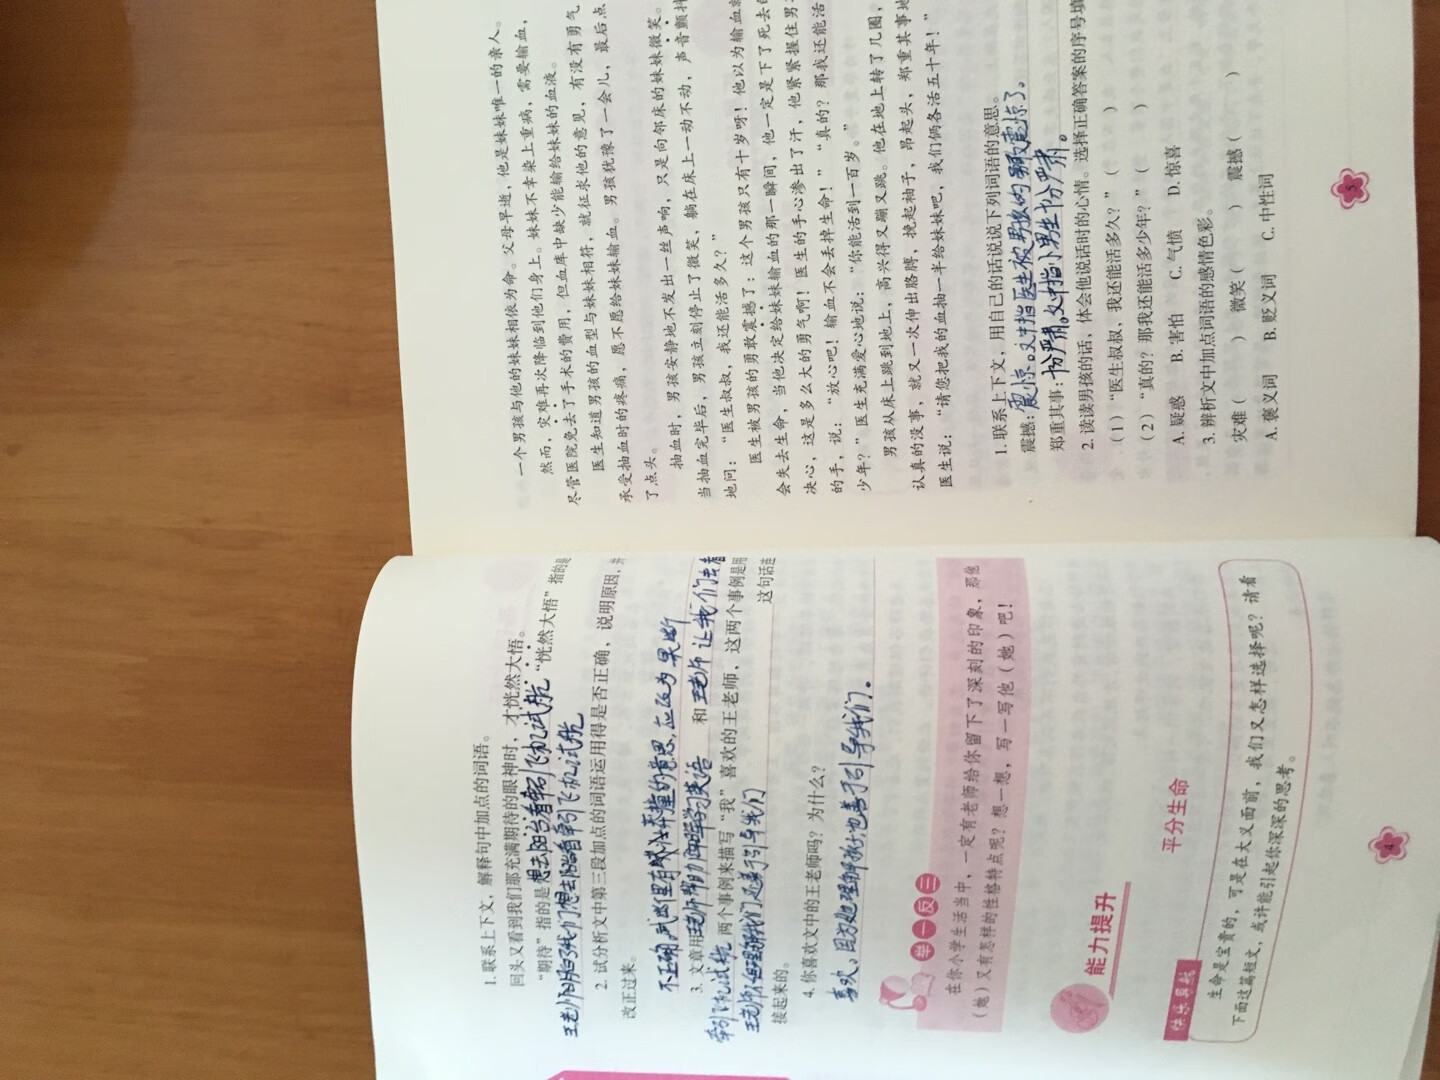 1. 联系上下文，解释句中加点的词语。
回头又看到我们那充满期待的眼神时，才恍然大悟。
“期待”指的是想去阳台看牵引飞机试航“恍然大悟”指的是
王老师明白了我们想去阳台看牵引飞机试航
2. 试分析文中第三段加点的词语运用得是否正确，说明原因，并
改正过来。
不正确，武断里有
的意思，应改为果断
3. 文章用王老师帮助
学习英语 和王老师让我们去看
牵引飞机试航 两个事例来描写“我”喜欢的王老师，这两个事例是用
王老师不但理解我们还善于引导我们 这句话连
接起来的。
4. 你喜欢文中的王老师吗？为什么？
喜欢，因为她理解孩子，也善于引导我们。
举一反三
在你小学生活当中，一定有老师给你留下了深刻的印象，那他
（她）又有怎样的性格特点呢？想一想，写一写他（她）吧！
能力提升
平分生命
快乐导航
生命是宝贵的，可是在大义面前，我们又怎样选择呢？请看
下面这篇短文，或许能引起你深深的思考。
4
一个男孩与他的妹妹相依为命。父母早逝，他是妹妹唯一的亲人。
然而，灾难再次降临到他们身上。妹妹不幸染上重病，需要输血，
尽管医院免去了手术的费用，但血库中缺少能输给妹妹的血液。
医生知道男孩的血型与妹妹相符，就征求他的意见，有没有勇气
承受抽血时的疼痛，愿不愿给妹妹输血。男孩犹豫了一会儿，最后点
了点头。
抽血时，男孩安静地不发出一丝声响，只是向邻床的妹妹微笑。
当抽血完毕后，男孩立刻停止了微笑，躺在床上一动不动，声音颤抖
地问：“医生叔叔，我还能活多久？”
医生被男孩的勇敢震撼了：这个男孩只有十岁呀！他以为输血就
会失去生命，当他决定给妹妹输血的那一瞬间，他一定是下了死去的
决心，这是多么大的勇气啊！医生的手心渗出了汗，他紧紧握住男孩
的手，说：“放心吧！输血不会丢掉生命！”“真的？那我还能活
少年？”医生充满爱心地说：“你能活到一百岁。”
男孩从床上跳到地上，高兴得又蹦又跳。他在地上转了几圈，
认真的没事，就又一次伸出胳膊，挽起袖子，昂起头，郑重其事地
医生说：“请您把我的血抽一半给妹妹吧，我们俩各活五十年！”
1. 联系上下文，用自己的话说说下列词语的意思。
震撼：震惊。文中指医生被男孩的
震惊了。
郑重其事：十分严肃。文中指小男生十分严肃。
2. 读读男孩的话，体会他说话时的心情。选择正确答案的序号填
（1）“医生叔叔，我还能活多久？”（ ）
（2）“真的？那我还能活多少年？”（ ）
A. 疑惑 B. 害怕 C. 气愤 D. 惊喜
3. 辨析文中加点词语的感情色彩。
灾难（ ） 微笑（ ） 震撼（ ）
A. 褒义词 B. 贬义词 C. 中性词
5